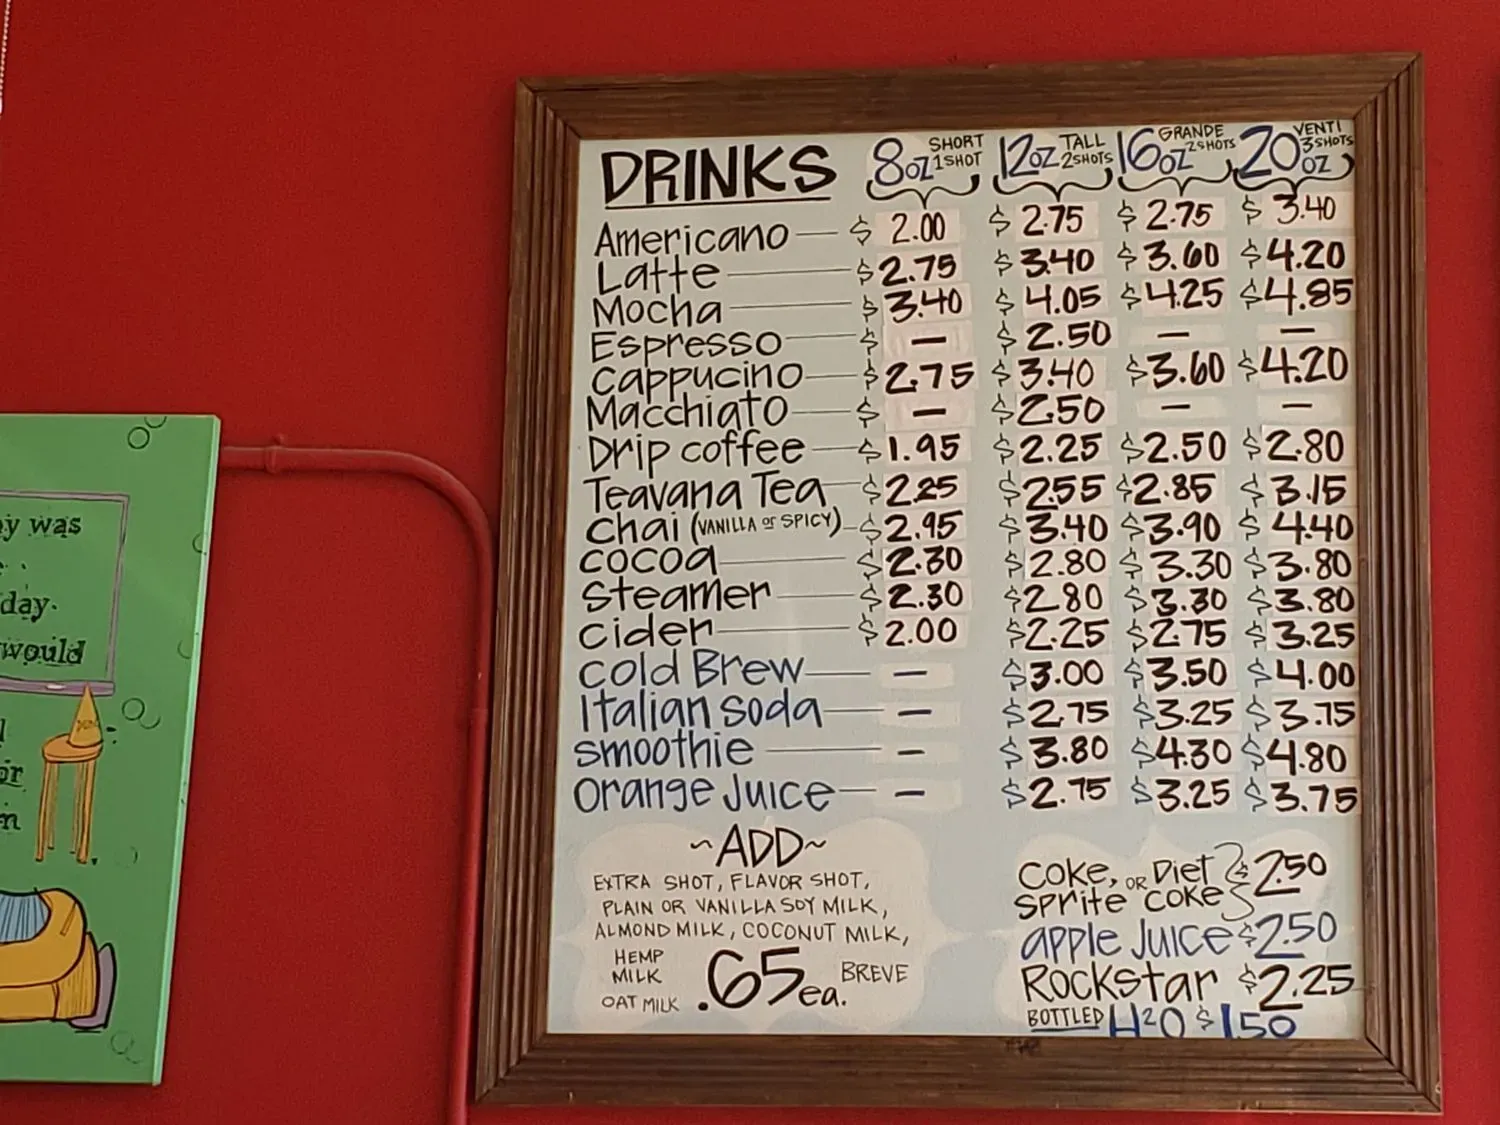 DRINKS 8oz SHORT 1SHOT 12oz TALL 2SHOTS 16oz GRANDE 2SHOTS 20oz VENTI 3SHOTS
Americano $ 2.00 $ 2.75 $ 2.75 $ 3.40
Latte $ 2.75 $ 3.40 $ 3.60 $ 4.20
Mocha $ 3.40 $ 4.05 $ 4.25 $ 4.85
Espresso $ — $ 2.50 — —
Cappucino $ 2.75 $ 3.40 $ 3.60 $ 4.20
Macchiato $ — $ 2.50 — —
Drip coffee $ 1.95 $ 2.25 $ 2.50 $ 2.80
Teavana Tea $ 2.25 $ 2.55 $ 2.85 $ 3.15
Chai (VANILLA or SPICY) $ 2.95 $ 3.40 $ 3.90 $ 4.40
cocoa $ 2.30 $ 2.80 $ 3.30 $ 3.80
Steamer $ 2.30 $ 2.80 $ 3.30 $ 3.80
cider $ 2.00 $ 2.25 $ 2.75 $ 3.25
cold Brew — $ 3.00 $ 3.50 $ 4.00
Italian soda — $ 2.75 $ 3.25 $ 3.75
smoothie — $ 3.80 $ 4.30 $ 4.80
orange Juice — $ 2.75 $ 3.25 $ 3.75
~ADD~
EXTRA SHOT, FLAVOR SHOT,
PLAIN OR VANILLA SOY MILK,
ALMOND MILK, COCONUT MILK,
HEMP MILK
OAT MILK
.65 ea.
BREVE
COKE, OR Diet
sprite coke $ 2.50
apple Juice $ 2.50
Rockstar $ 2.25
BOTTLED H2O $ 1.50
was
day.
would